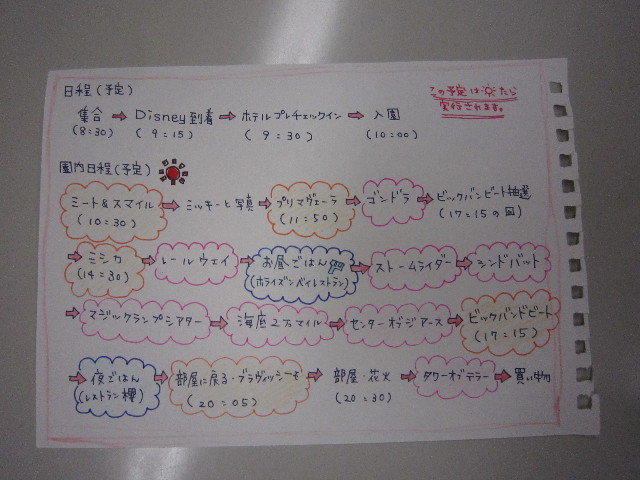 日程(予定)
この予定は☼たら
実行されます。
集合 → Disney到着 → ホテルプレチェックイン → 入園
(8:30) (9:15) (9:30) (10:00)
園内日程(予定)
ミート&スマイル → ミッキーと写真 → プリマヴェーラ → ゴンドラ → ビックバンビート抽選
(10:30) (11:50) (17:15の回)
→ ミシカ → レールウェイ → お昼ごはん → ストームライダー → シンドバット
(14:30) (ホライズンベイレストラン)
→ マジックランプシアター → 海底2万マイル → センターオブジアース → ビックバンドビート
(17:15)
→ 夜ごはん → 部屋に戻る・ブラヴィッシーモ → 部屋・花火 → タワーオブテラー → 買い物
(レストラン櫻) (20:05) (20:30)